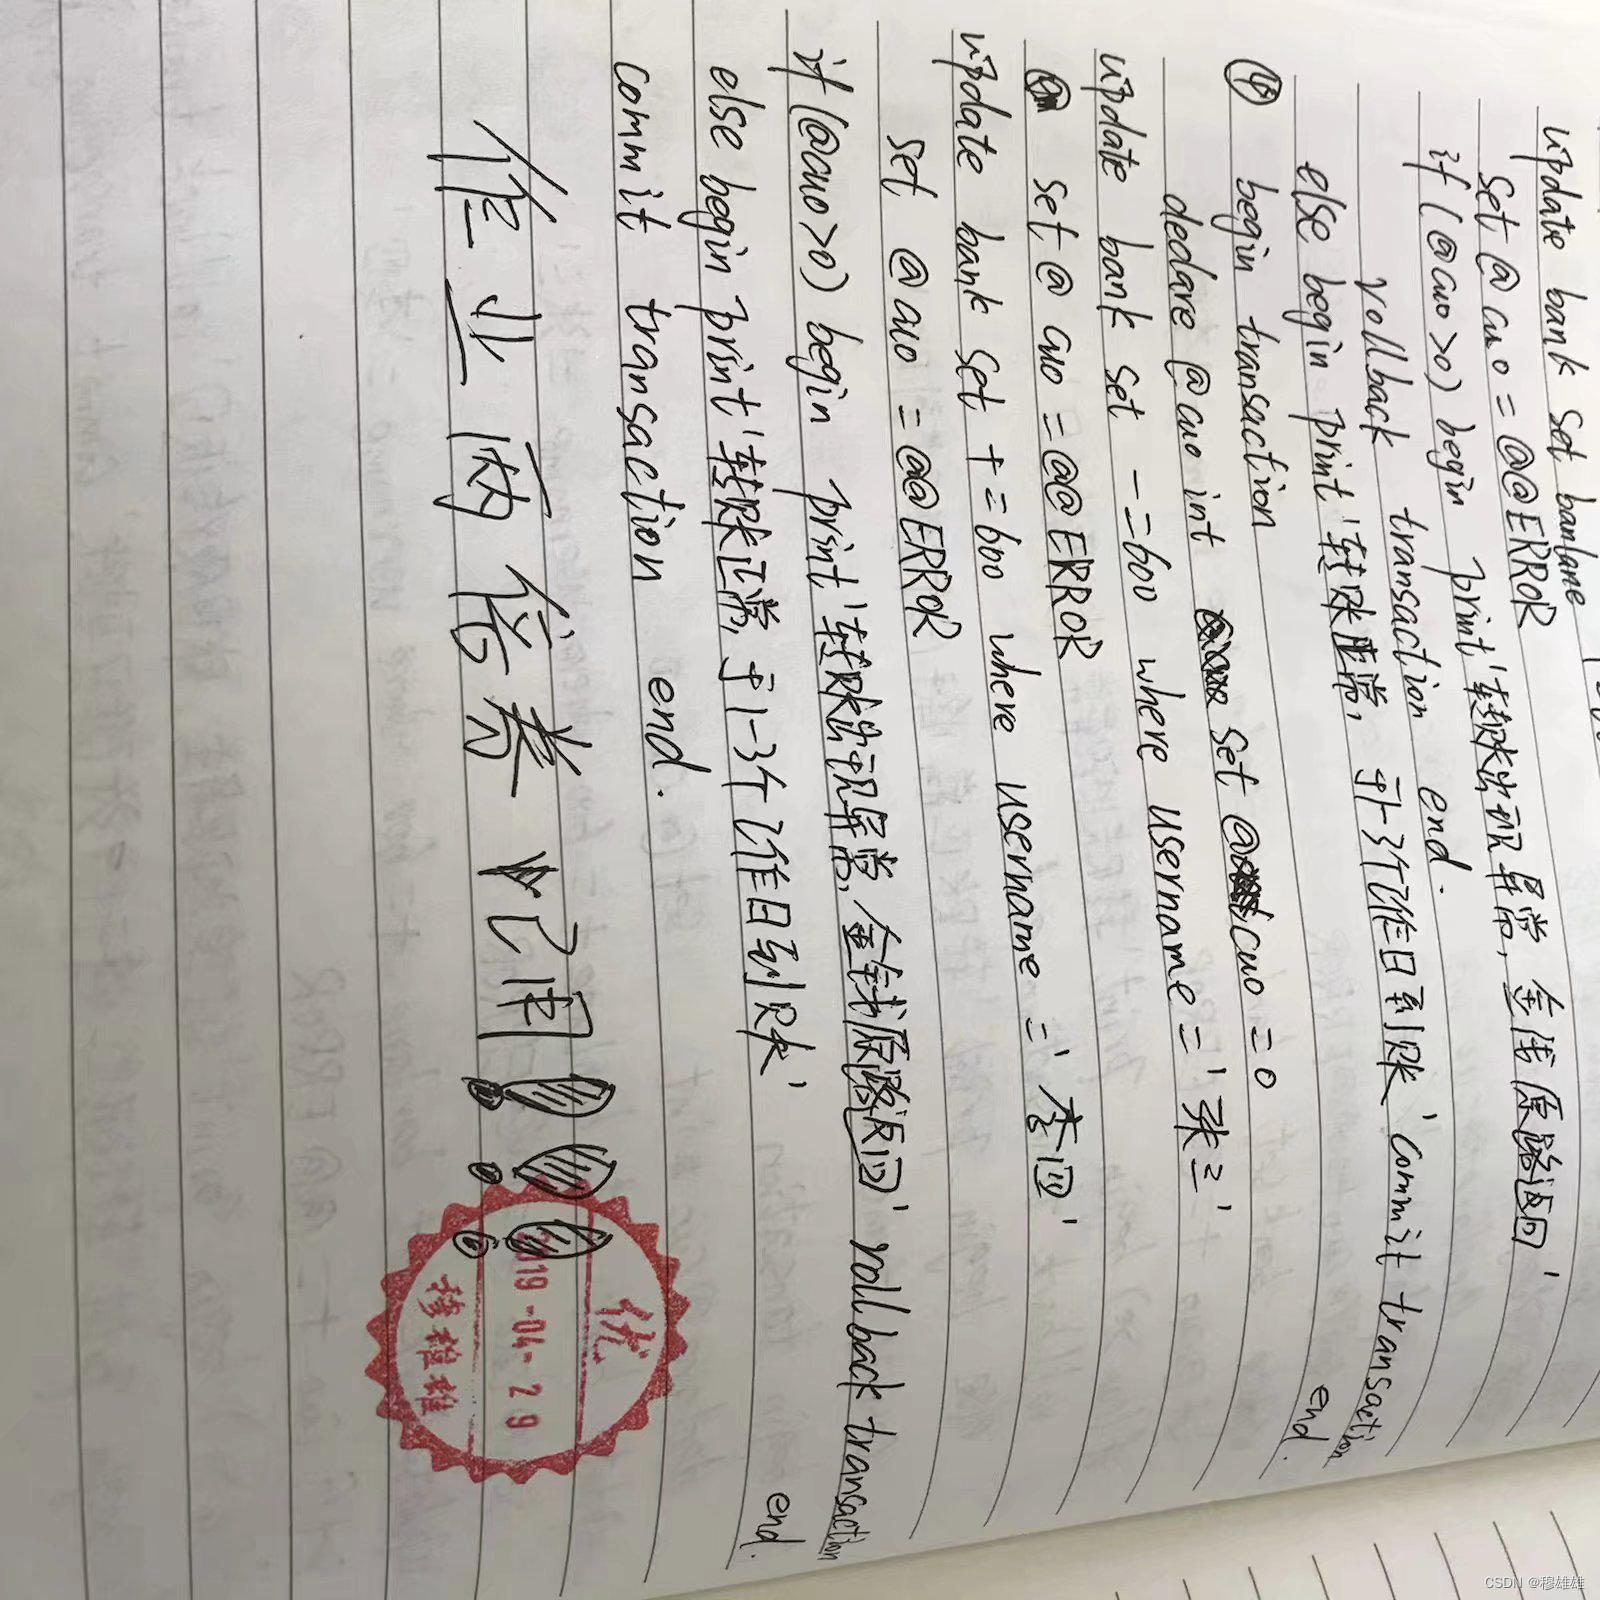 update bank set banlane
set @cuo = @@ERROR
if (@cuo >0) begin print '转账出现异常, 金钱原路返回'
rollback transaction end.
else begin print '转账正常, 于1-3个工作日到账' commit transaction end.
④ begin transaction
declare @cuo int set @cuo = 0
update bank set -=600 where username='张三'
set @cuo =@@ERROR
update bank set +=600 where username ='李四'
set @cuo =@@ERROR
if (@cuo >0) begin print '转账出现异常, 金钱原路返回' rollback transaction end.
else begin print '转账正常, 于1-3个工作日到账'
commit transaction end.
作业两倍卷
优
2019-04-29
穆雄雄
CSDN @穆雄雄